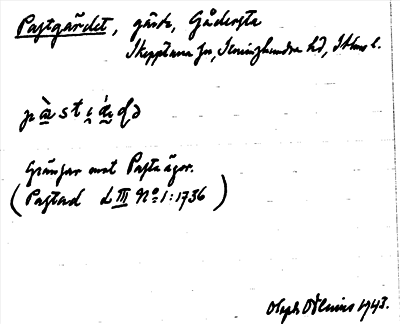 Pastgärdet, gärde, Gådersta
Skepptuna sn, Seminghundra hd, Sthms l.
Gränsar mot Pastaägor.
(Pastad LIII No 1:1736)
1943.